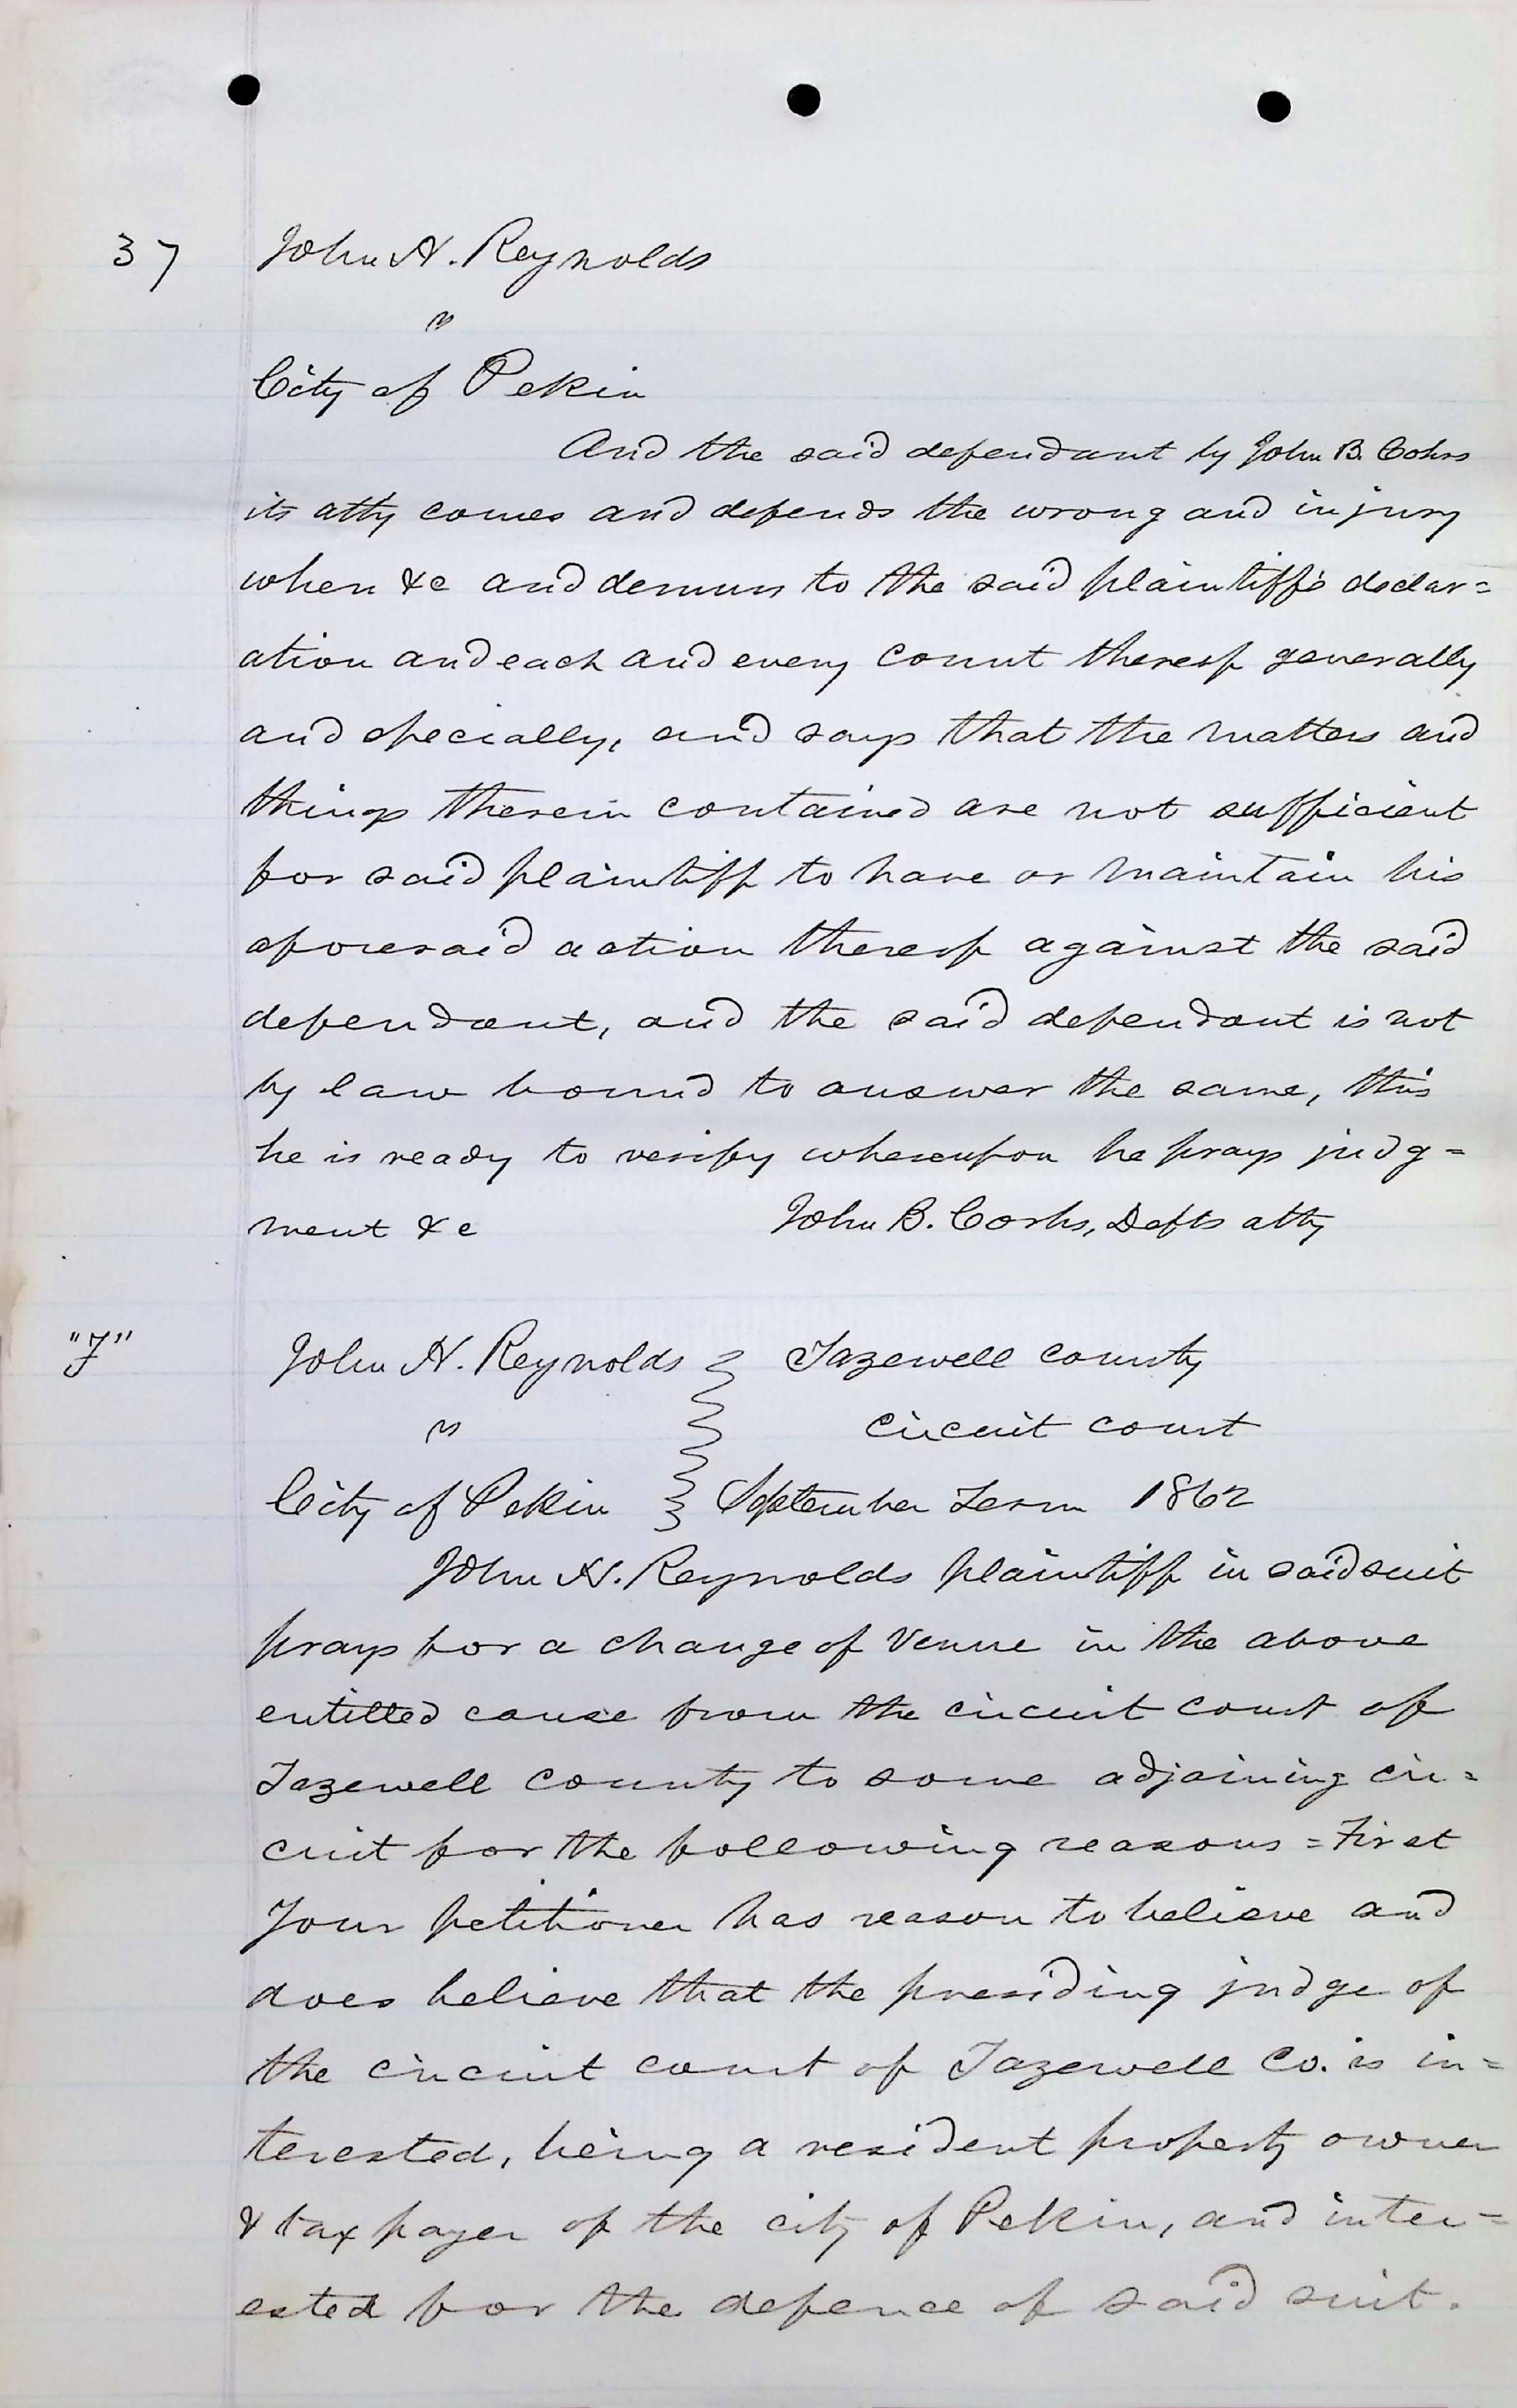 37 John H. Reynolds
vs
City of Pekin
And the said defendant by John B. Cohrs
its atty comes and defends the wrong and injury
when &c and demurs to the said plaintiff's declar=
ation and each and every count thereof generally
and specially, and says that the matters and
things therein contained are not sufficient
for said plaintiff to have or maintain his
aforesaid action thereof against the said
defendant, and the said defendant is not
by law bound to answer the same, this
he is ready to verify whereupon he prays judg=
ment &c John B. Corhs, Defts atty
"F" John H. Reynolds Tazewell county
vs circuit court
City of Pekin September Term 1862
John H. Reynolds plaintiff in said suit
prays for a change of Venue in the above
entitled cause from the circuit court of
Tazewell county to some adjoining cir=
cuit for the following reasons = First
Your petitioner has reason to believe and
does believe that the presiding judge of
the circuit court of Tazewell Co. is in=
terested, being a resident property owner
& tax payer of the city of Pekin, and inter=
ested for the defence of said suit.